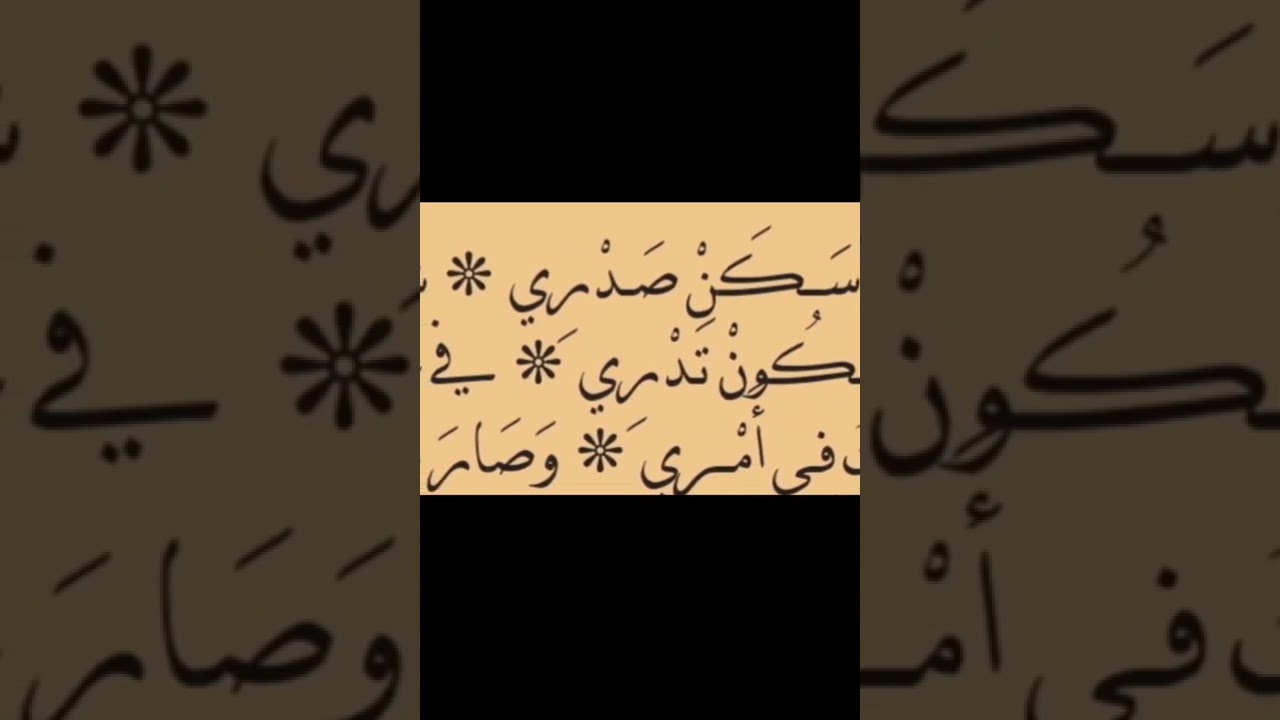 سَكَنْ صَدْرِي ❊
ـكُونْ تَدْرِي ❊ في
في أَمْرِي ❊ وَصَارَ